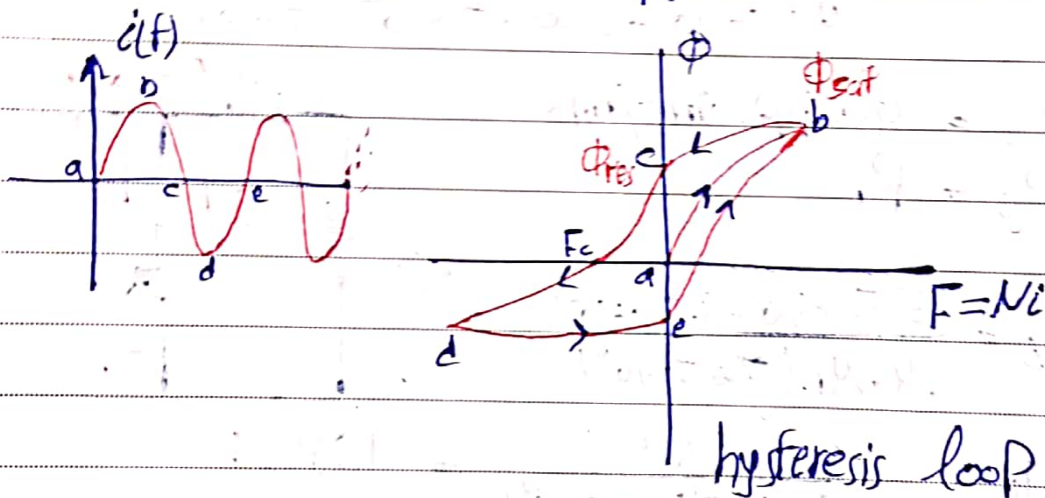 i(t)
b
a
c
e
d
Φ
Φsat
b
Φres
c
Fc
a
F=Ni
e
d
hysteresis loop